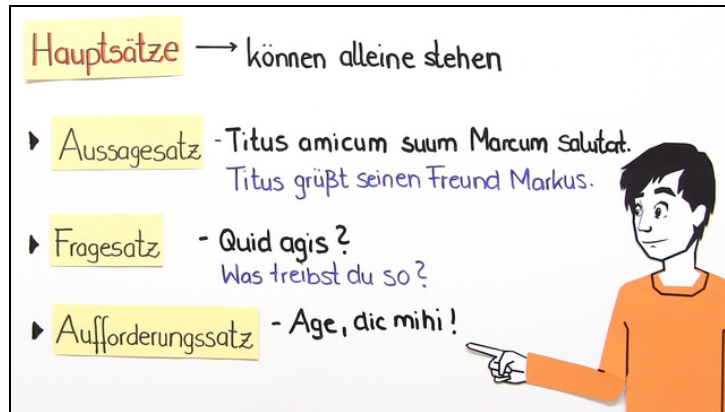 Hauptsätze → können alleine stehen
Aussagesatz - Titus amicum suum Marcum salutat.
Titus grüßt seinen Freund Markus.
Fragesatz - Quid agis?
Was treibst du so?
Aufforderungssatz - Age, dic mihi!